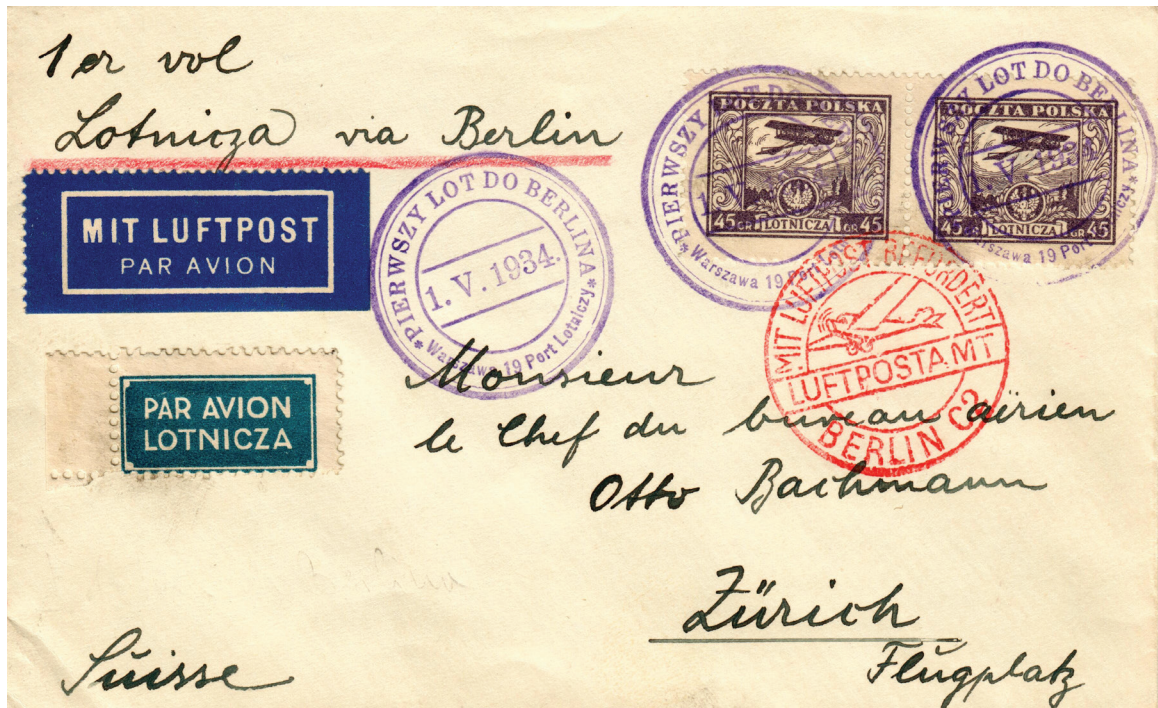 1er vol
Lotnicza via Berlin
MIT LUFTPOST
PAR AVION
PAR AVION
LOTNICZA
*PIERWSZY LOT DO BERLINA*
1. V. 1934.
Warszawa 19 Port Lotniczy
*PIERWSZY LOT DO
Warszawa 19 Port
POCZTA POLSKA
45 GR. LOTNICZA GR. 45
PIERWSZY LOT DO BERLINA*
1. V. 193
Warszawa 19 Port
POCZTA POLSKA
45 GR. LOTNICZA GR. 45
MIT LUFTPOST BEFÖRDERT
LUFTPOSTAMT
BERLIN C2
Monsieur
le Chef du bureau aérien
Otto Bachmann
Zürich
Flugplatz
Suisse